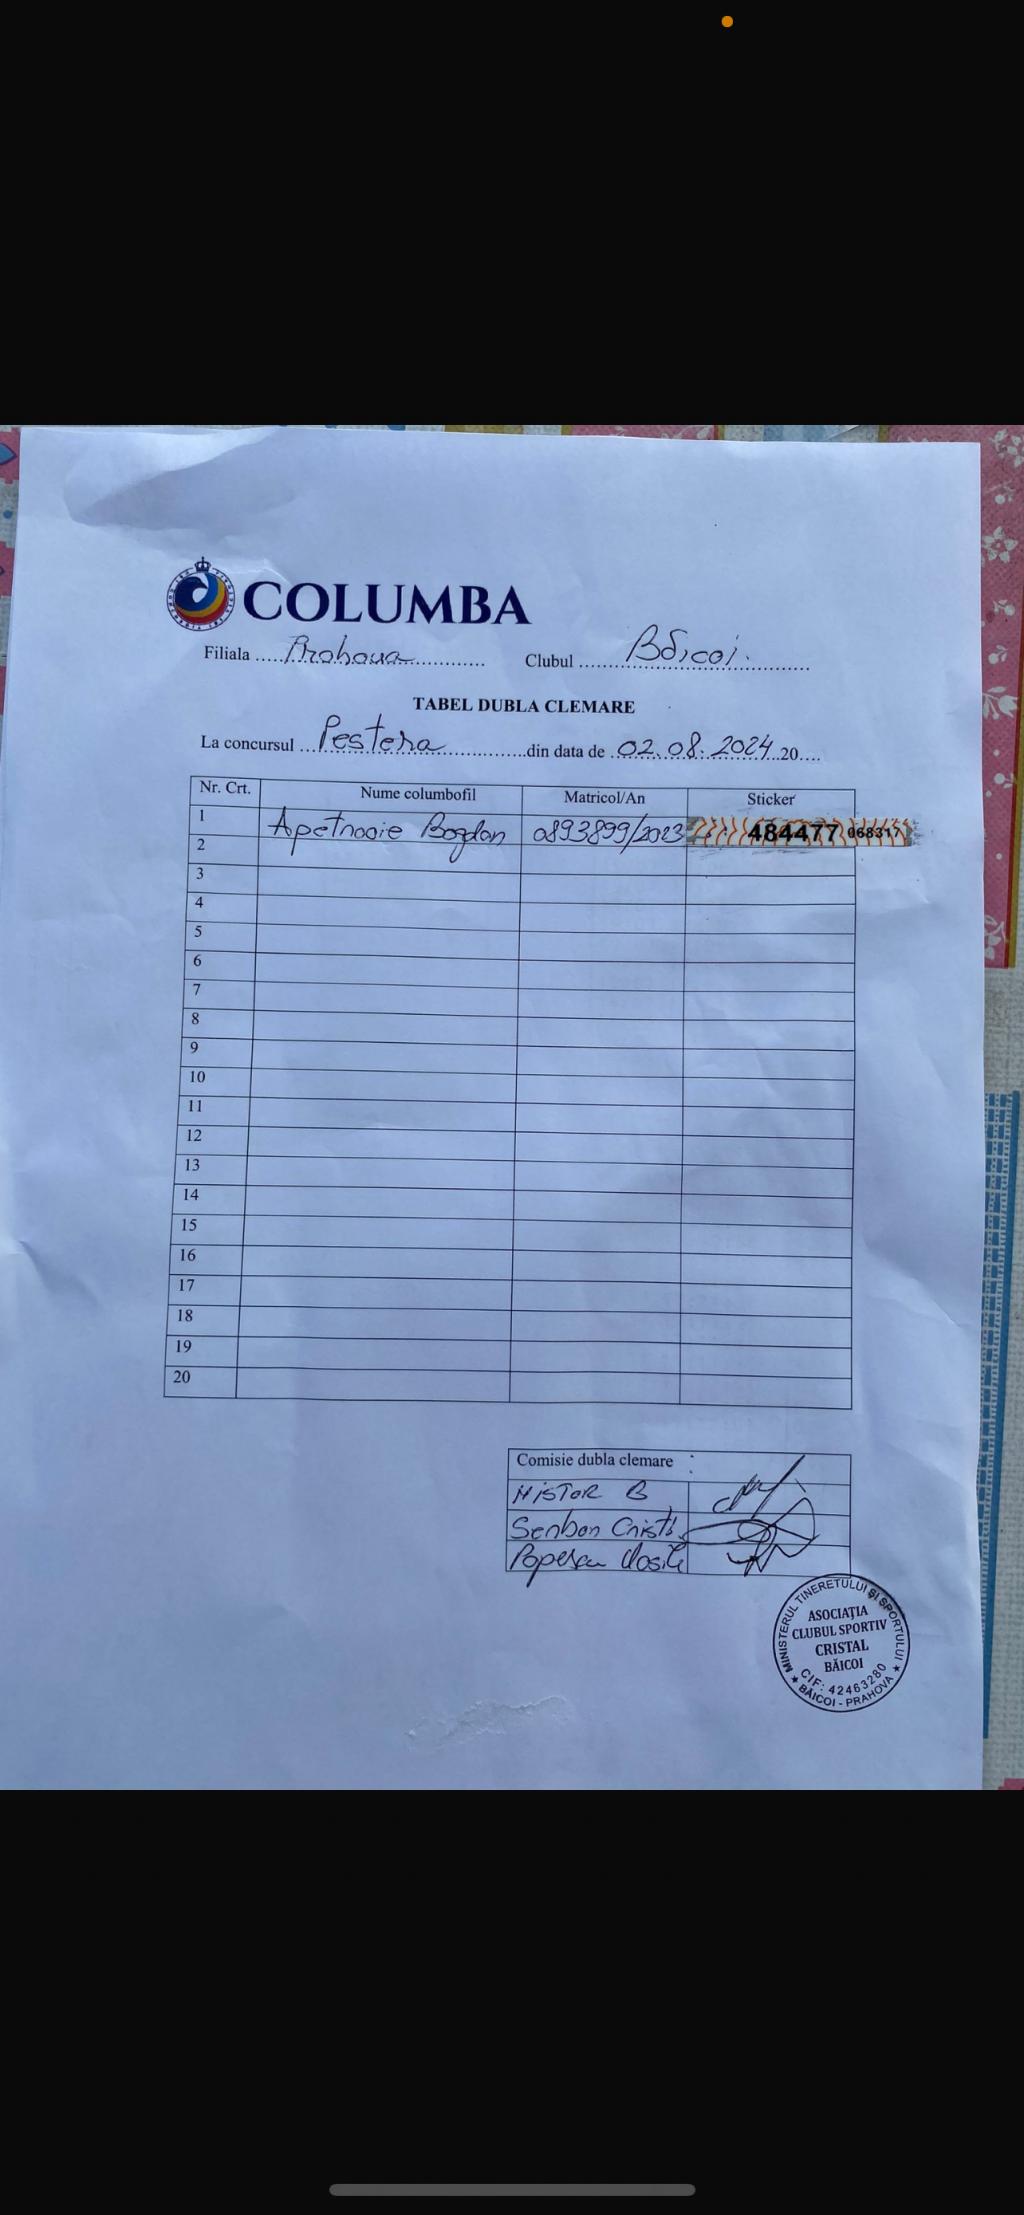 COLUMBA
Filiala ....Prahova............ Clubul ........Băicoi...........
TABEL DUBLA CLEMARE
La concursul ...Pestera................din data de ..02.08.2024..20....
Nr. Crt. Nume columbofil Matricol/An Sticker
1 Apetrooie Bogdan 0893899/2023 484477 068317
2
3
4
5
6
7
8
9
10
11
12
13
14
15
16
17
18
19
20
Comisie dubla clemare :
NISTOR B
Serban Cristi
Popescu Vasile
MINISTERUL TINERETULUI ȘI SPORTULUI
ASOCIAȚIA
CLUBUL SPORTIV
CRISTAL
BĂICOI
CIF: 42463280
★ BĂICOI - PRAHOVA ★